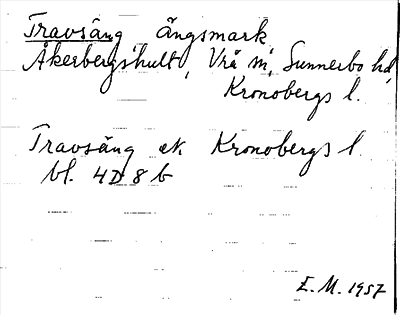 Travsäng Ängsmark
Åkerbergshult, Vrå sn, Sunnerbo hd,
Kronobergs l.
Travsäng ek Kronobergs l.
bl. 4D 8 b
E.M. 1957